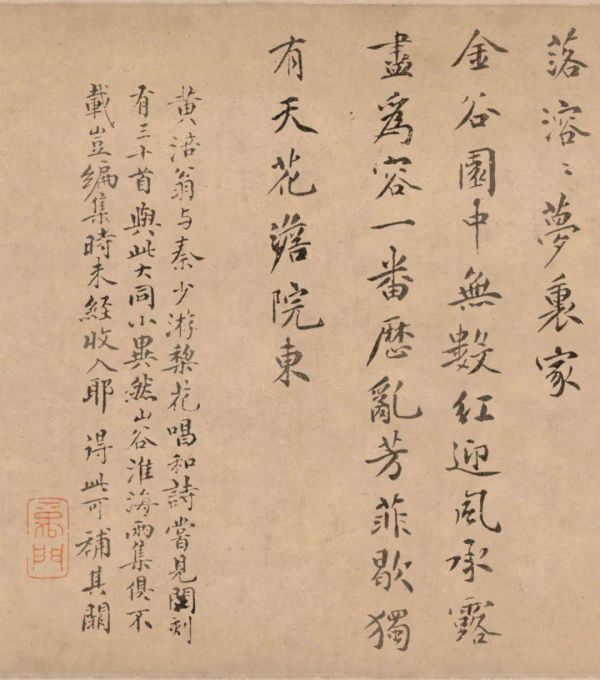 落溶〻夢裏家
金谷園中無數紅迎風承露
盡爲容一番歷亂芳菲歇獨
有天花澹院東
黄涪翁与秦少游棃花唱和詩嘗見閣刻
有三十首與此大同小異然山谷淮海兩集俱不
載豈編集時未經收入耶 得此可補其闕